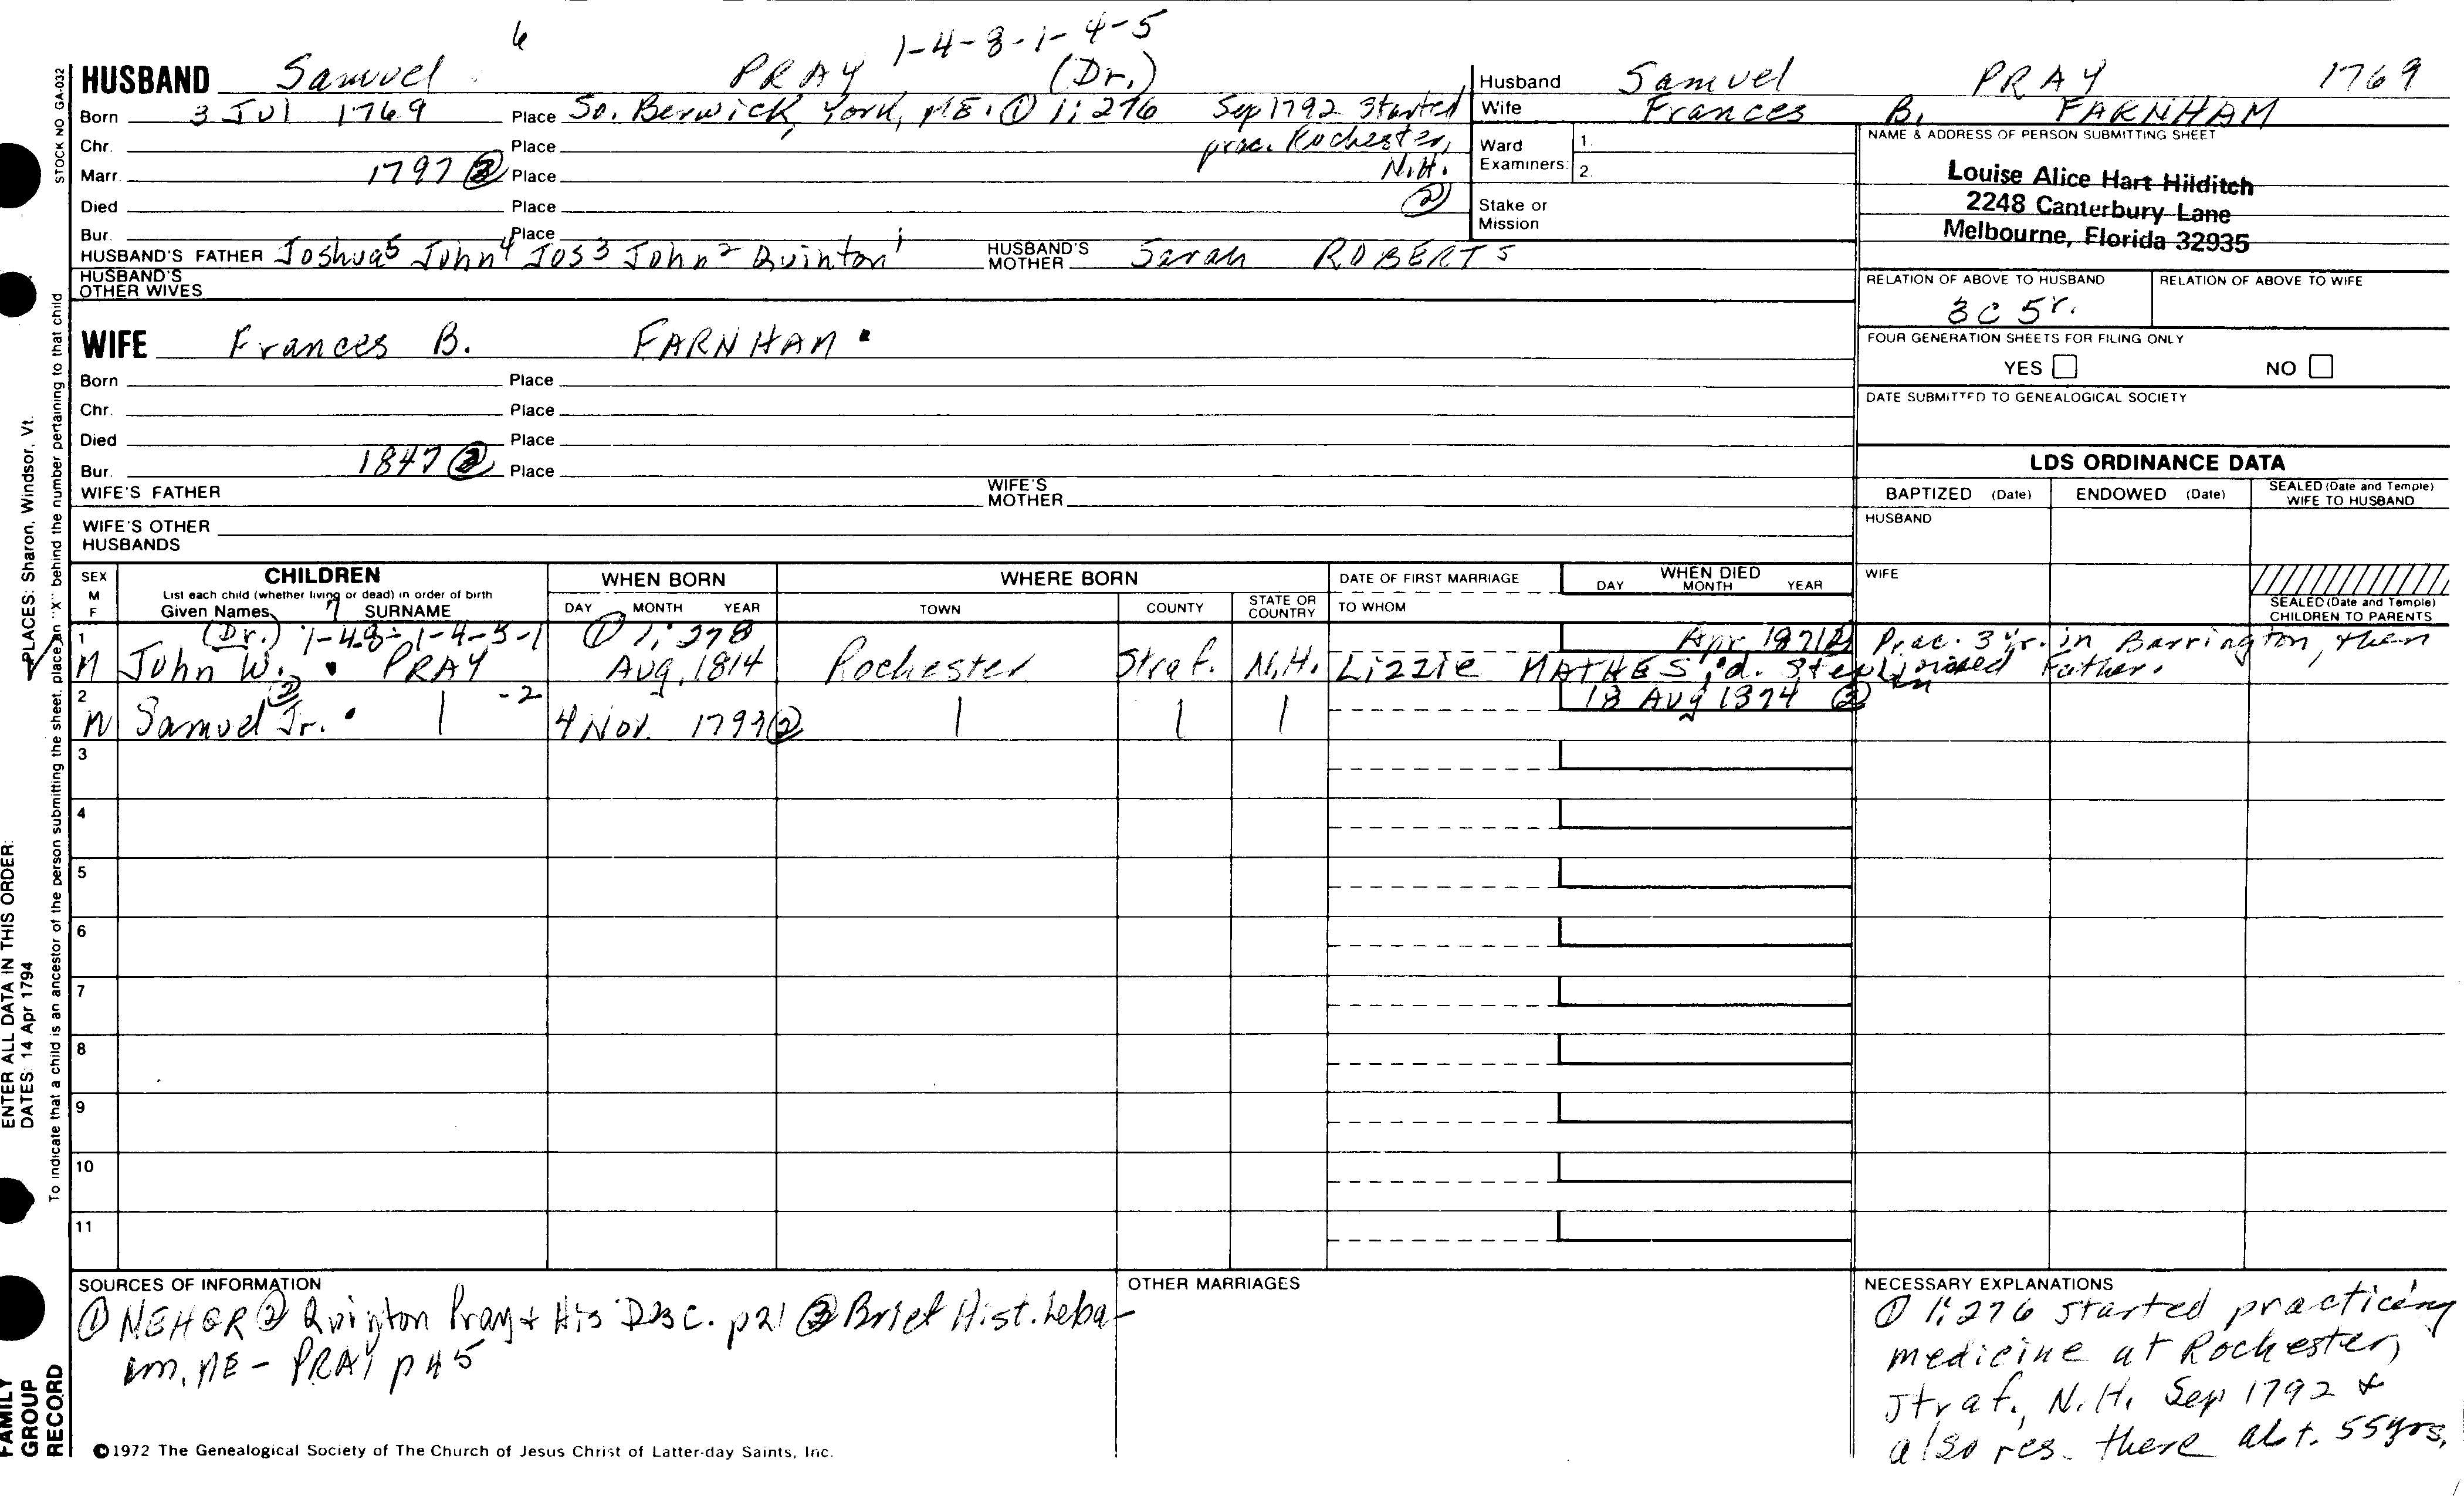 6
1-4-8-1-4-5
HUSBAND Samuel PRAY (Dr.)
Born 3 Jul 1769 Place So. Berwick, York, ME. ① 1:276 Sep 1792 started
Chr. Place prac. Rochester,
Marr. 1797 ③ Place N.H.
Died Place ②
Bur. Place
HUSBAND'S FATHER Joshua5 John4 Jos3 John2 Quinton1 HUSBAND'S MOTHER Sarah ROBERTS
HUSBAND'S
OTHER WIVES
WIFE Frances B. FARNHAM
Born Place
Chr. Place
Died Place
Bur. 1847 ③ Place
WIFE'S FATHER WIFE'S MOTHER
WIFE'S OTHER
HUSBANDS
Husband Samuel PRAY 1769
Wife Frances B. FARNHAM
Ward 1.
Examiners: 2.
Stake or
Mission
NAME & ADDRESS OF PERSON SUBMITTING SHEET
Louise Alice Hart Hilditch
2248 Canterbury Lane
Melbourne, Florida 32935
RELATION OF ABOVE TO HUSBAND RELATION OF ABOVE TO WIFE
3C 5r.
FOUR GENERATION SHEETS FOR FILING ONLY
YES NO
DATE SUBMITTED TO GENEALOGICAL SOCIETY
LDS ORDINANCE DATA
BAPTIZED (Date) ENDOWED (Date) SEALED (Date and Temple)
WIFE TO HUSBAND
HUSBAND
WIFE
SEALED (Date and Temple)
CHILDREN TO PARENTS
SEX
M
F
CHILDREN
List each child (whether living or dead) in order of birth
Given Names 7 SURNAME
WHEN BORN
DAY MONTH YEAR
WHERE BORN
TOWN COUNTY STATE OR
COUNTRY
DATE OF FIRST MARRIAGE
TO WHOM
WHEN DIED
DAY MONTH YEAR
1 (Dr.) 1-4-8-1-4-5-1 ① 1:278 Apr 1871 ② Prac. 3 yr. in Barrington, then
M John W. PRAY Aug. 1814 Rochester Straf. N.H. Lizzie MATHES; d. Father.
2 ② -2 18 Aug 1874 ②
M Samuel Jr. | 4 Nov. 1797 ② | | |
3
4
5
6
7
8
9
10
11
SOURCES OF INFORMATION
① NEHGR ② Quinton Pray & His Desc. p21 ③ Brief Hist. Leba-
on, ME - PRAY p 45
OTHER MARRIAGES
NECESSARY EXPLANATIONS
① 1:276 started practicing
medicine at Rochester,
Straf., N.H. Sep 1792 &
also res. there abt. 55 yrs.
©1972 The Genealogical Society of The Church of Jesus Christ of Latter-day Saints, Inc.
STOCK NO GA-032
To indicate that a child is an ancestor of the person submitting the sheet, place an "X" behind the number pertaining to that child
ENTER ALL DATA IN THIS ORDER:
DATES: 14 Apr 1794 PLACES: Sharon, Windsor, Vt.
FAMILY
GROUP
RECORD